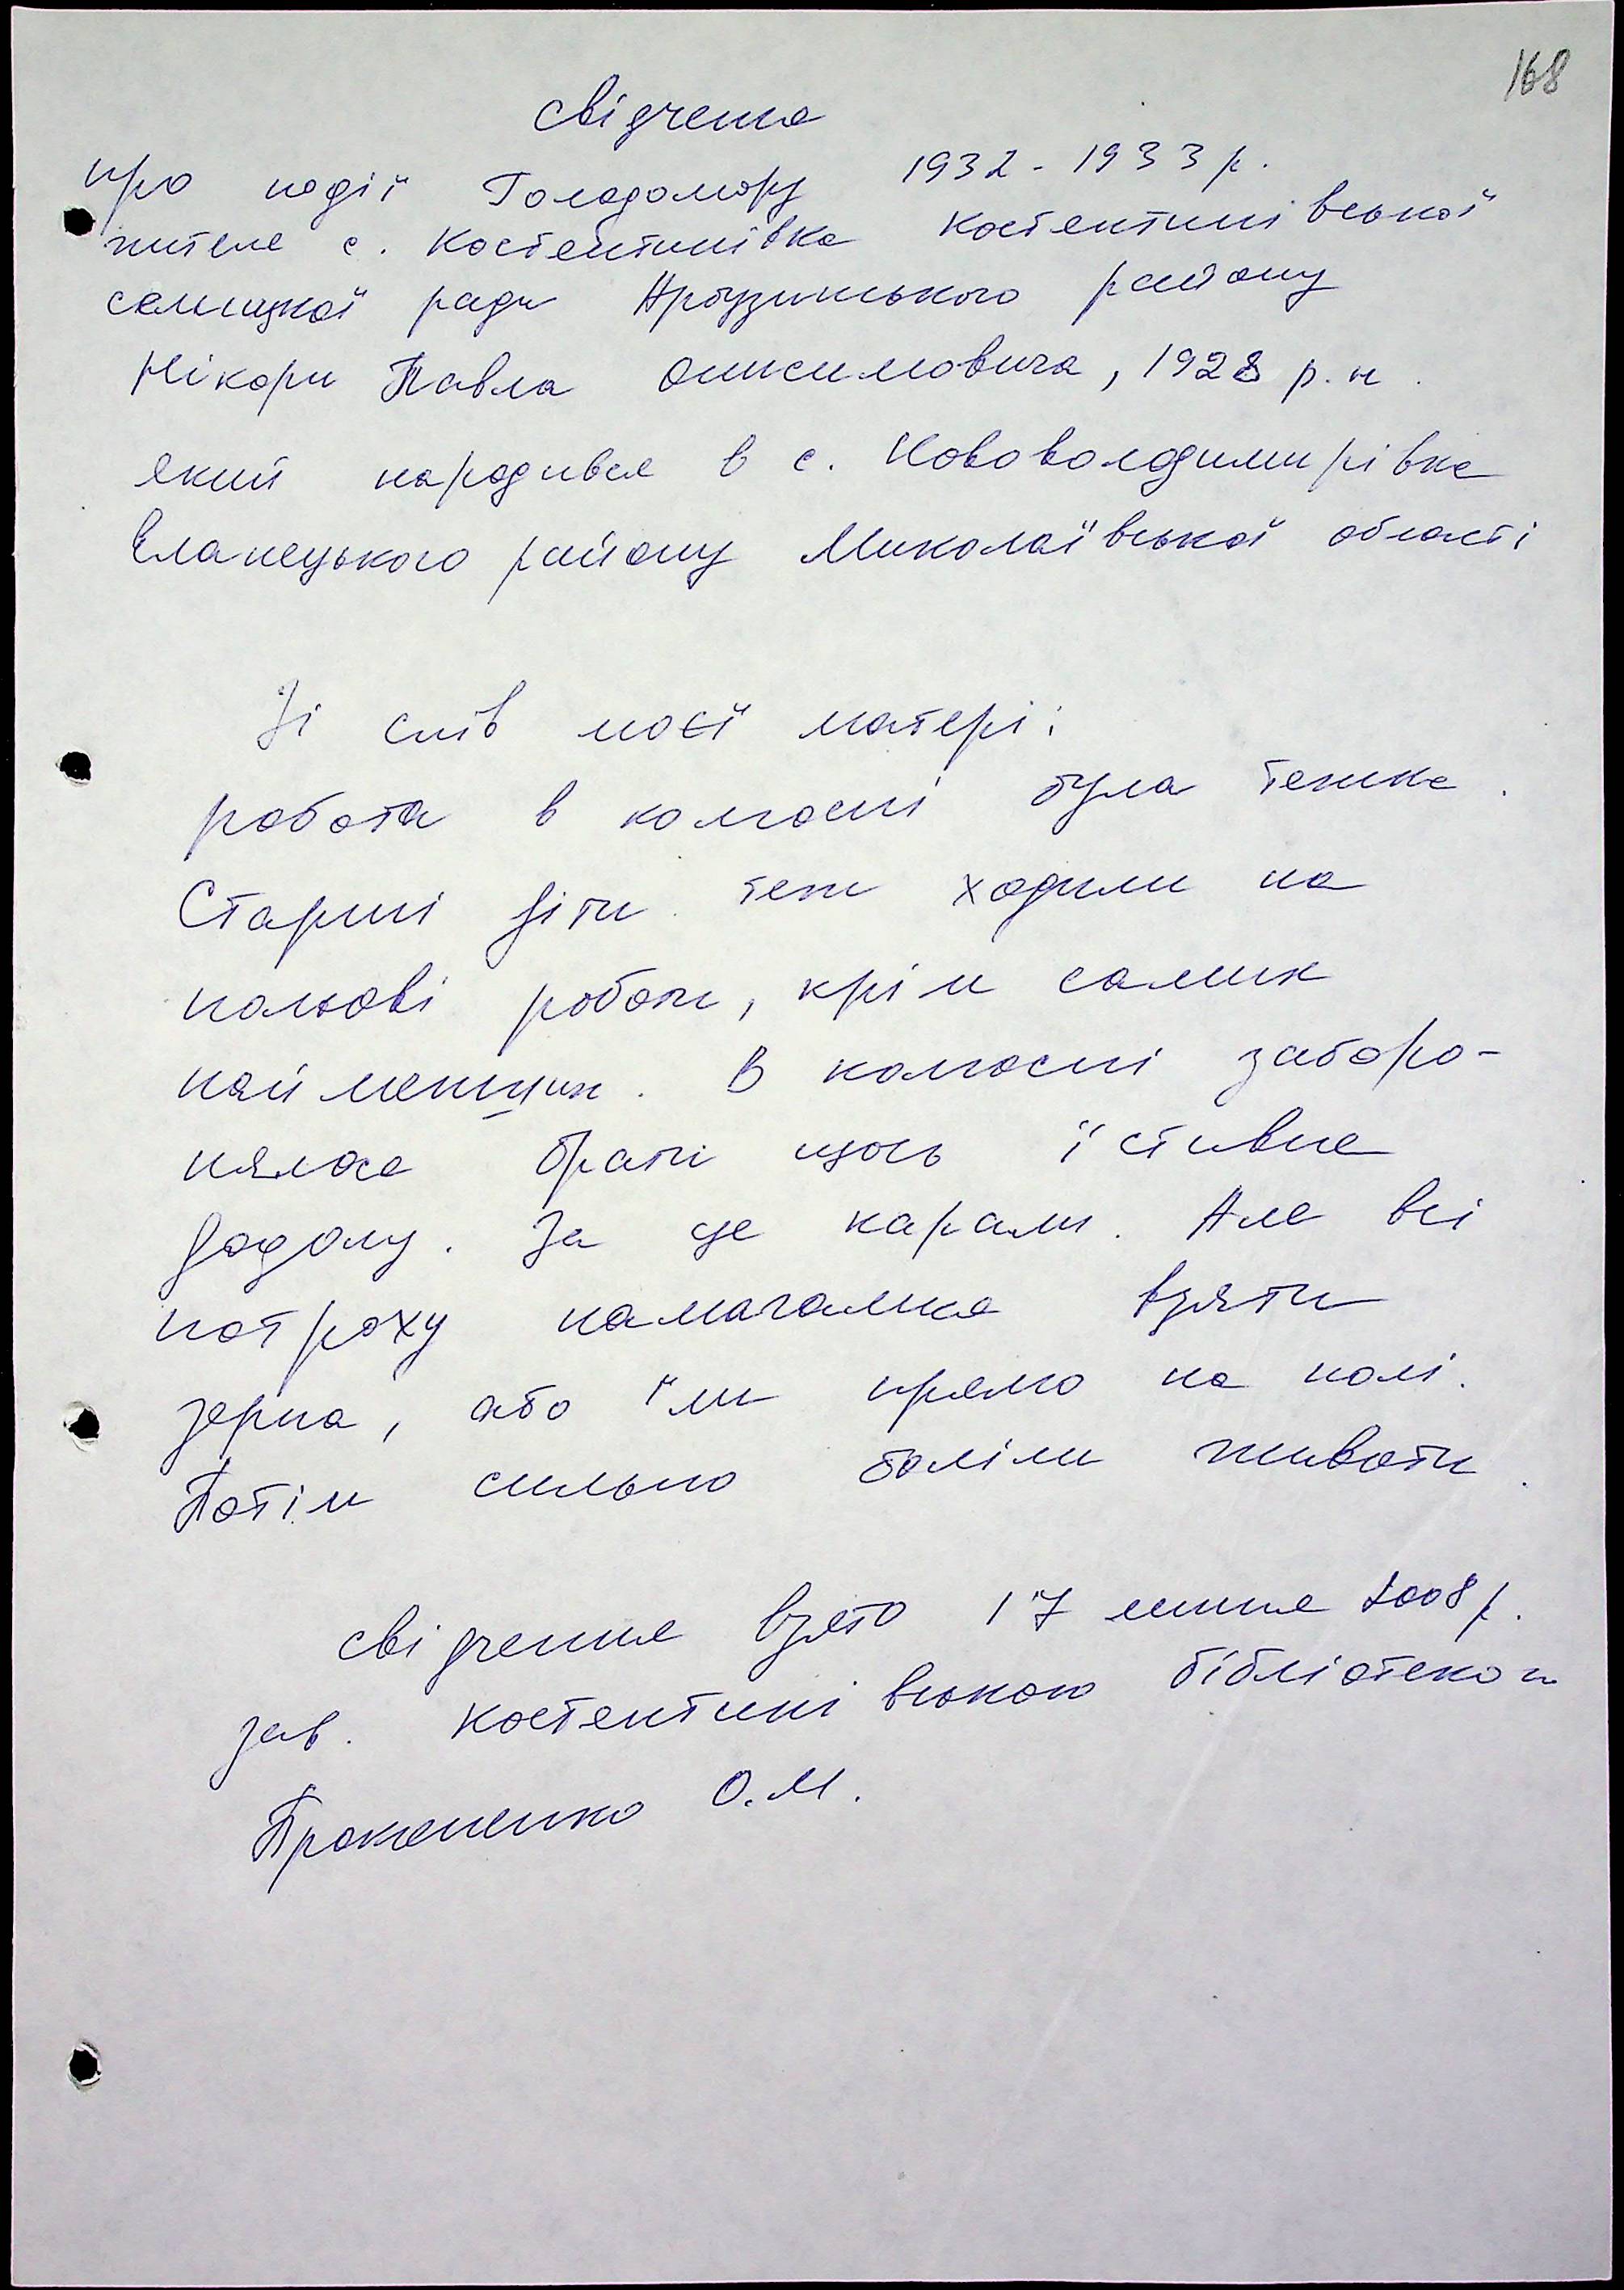 168
свідчення
про події Голодомору 1932-1933 р.
жителя с. Костянтинівка Костянтинівської
селищної ради Арбузинського району
Нікори Павла Онисимовича, 1928 р.н.
який народився в с. Нововолодимирівка
Єланецького району Миколаївської області
Зі слів моєї матері:
робота в колгоспі була тяжка.
Старші діти теж ходили на
польові роботи, крім самих
найменших. В колгоспі заборо-
нялося брати щось їстивне
додому. За це карали. Але всі
потроху намагалися взяти
зерна, або їли прямо на полі.
Потім сильно боліли животи.
свідчення взято 17 липня 2008 р.
зав. Костянтинівською бібліотекою
О.М.